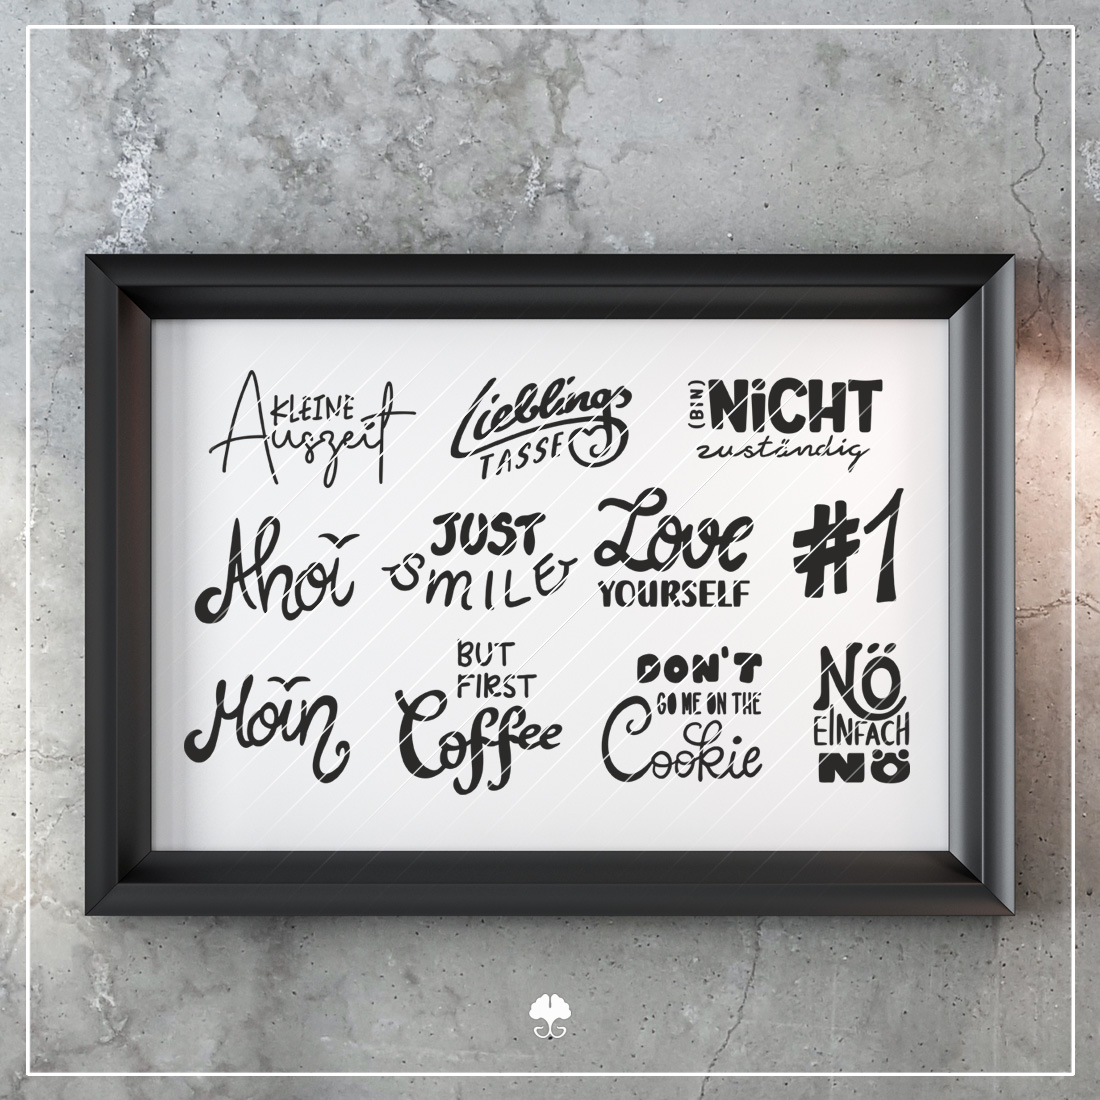 KLEINE
Auszeit
Lieblings
TASSE
(BIN) NiCHT
zuständig
Ahoi
JUST
SMILE
Love
YOURSELF
#1
Moin
BUT
FIRST
Coffee
DON'T
GO ME ON THE
Cookie
NÖ
EINFACH
NÖ